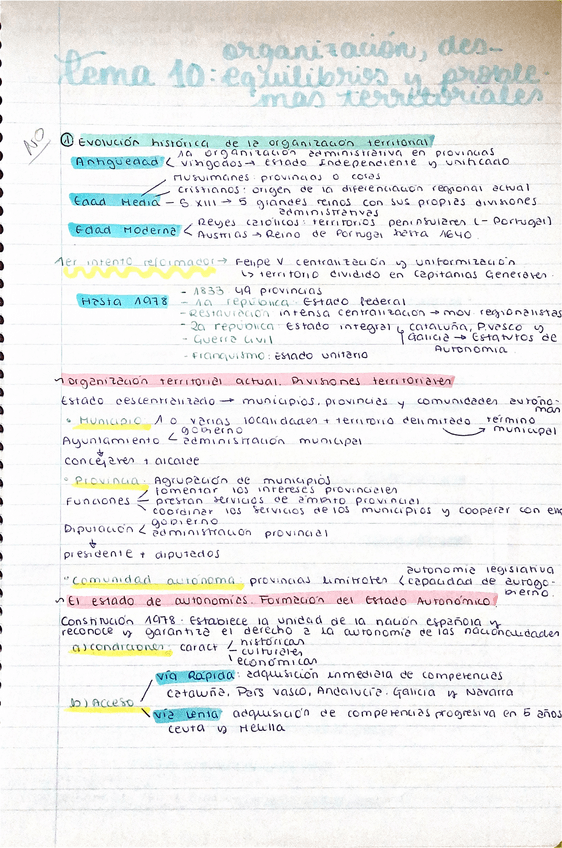 tema 10: organización, des-
equilibrios y proble
mas territoriales
NO
① Evolución histórica de la organización territorial
Antigüedad < 1a organización administrativa en provincias
visigodos → estado independiente y unificado
musulmanes: provincias o coras
cristianos: origen de la diferenciación regional actual
Edad Media – S XIII → 5 grandes reinos con sus propias divisiones
administrativas
Edad Moderna < Reyes católicos: territorios peninsulares (- Portugal)
Austrias → Reino de Portugal hasta 1640.
1er intento reformador → Felipe V centralización y uniformización
↳ territorio dividido en Capitanías Generales.
Hasta 1978
- 1833 49 provincias
- 1a república: Estado federal
- Restauración intensa centralización → mov. regionalistas
- 2a república: Estado integral ↳ Cataluña, P.vasco y
Galicia → Estatutos de
Autonomía
- Guerra civil
- Franquismo: Estado unitario
~ organización territorial actual. Divisiones territoriales
Estado descentralizado → municipios, provincias y comunidades autóno-
mas
• Municipio: 1 o varias localidades + territorio delimitado término
municipal
Ayuntamiento < gobierno
administración municipal
concejales + alcalde
• Provincia: Agrupación de municipios
Funciones < fomentar los intereses provinciales
prestan servicios de ámbito provincial
coordinar los servicios de los municipios y cooperar con
Diputación < gobierno
administración provincial
presidente + diputados
• Comunidad autónoma: provincias limítrofes < autonomía legislativa
capacidad de autogo-
bierno.
~ El estado de autonomías. Formación del Estado Autonómico.
Constitución 1978: Establece la unidad de la nación española y
reconoce y garantiza el derecho a la autonomía de las nacionalidades
a) condiciones: caract < históricas
culturales
económicas
b) Acceso
vía Rápida: adquisición inmediata de competencias
Cataluña, País Vasco, Andalucía. Galicia y Navarra
vía lenta adquisición de competencias progresiva en 5 años
Ceuta y Melilla